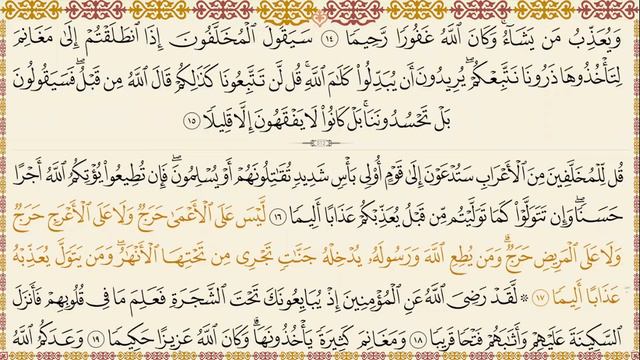 وَيُعَذِّبُ مَن يَشَآءُۚ وَكَانَ ٱللَّهُ غَفُورًا رَّحِيمًا ١٤ سَيَقُولُ ٱلْمُخَلَّفُونَ إِذَا ٱنطَلَقْتُمْ إِلَىٰ مَغَانِمَ
لِتَأْخُذُوهَا ذَرُونَا نَتَّبِعْكُمْۖ يُرِيدُونَ أَن يُبَدِّلُوا۟ كَلَـٰمَ ٱللَّهِۚ قُل لَّن تَتَّبِعُونَا كَذَٰلِكُمْ قَالَ ٱللَّهُ مِن قَبْلُۖ فَسَيَقُولُونَ
بَلْ تَحْسُدُونَنَاۚ بَلْ كَانُوا۟ لَا يَفْقَهُونَ إِلَّا قَلِيلًا ١٥
قُل لِّلْمُخَلَّفِينَ مِنَ ٱلْأَعْرَابِ سَتُدْعَوْنَ إِلَىٰ قَوْمٍ أُو۟لِى بَأْسٍ شَدِيدٍ تُقَـٰتِلُونَهُمْ أَوْ يُسْلِمُونَۖ فَإِن تُطِيعُوا۟ يُؤْتِكُمُ ٱللَّهُ أَجْرًا
حَسَنًاۖ وَإِن تَتَوَلَّوْا۟ كَمَا تَوَلَّيْتُم مِّن قَبْلُ يُعَذِّبْكُمْ عَذَابًا أَلِيمًا ١٦ لَّيْسَ عَلَى ٱلْأَعْمَىٰ حَرَجٌ وَلَا عَلَى ٱلْأَعْرَجِ حَرَجٌ
وَلَا عَلَى ٱلْمَرِيضِ حَرَجٌۗ وَمَن يُطِعِ ٱللَّهَ وَرَسُولَهُۥ يُدْخِلْهُ جَنَّـٰتٍ تَجْرِى مِن تَحْتِهَا ٱلْأَنْهَـٰرُۖ وَمَن يَتَوَلَّ يُعَذِّبْهُ
عَذَابًا أَلِيمًا ١٧ ۞ لَّقَدْ رَضِىَ ٱللَّهُ عَنِ ٱلْمُؤْمِنِينَ إِذْ يُبَايِعُونَكَ تَحْتَ ٱلشَّجَرَةِ فَعَلِمَ مَا فِى قُلُوبِهِمْ فَأَنزَلَ
ٱلسَّكِينَةَ عَلَيْهِمْ وَأَثَـٰبَهُمْ فَتْحًا قَرِيبًا ١٨ وَمَغَانِمَ كَثِيرَةً يَأْخُذُونَهَاۗ وَكَانَ ٱللَّهُ عَزِيزًا حَكِيمًا ١٩ وَعَدَكُمُ ٱللَّهُ